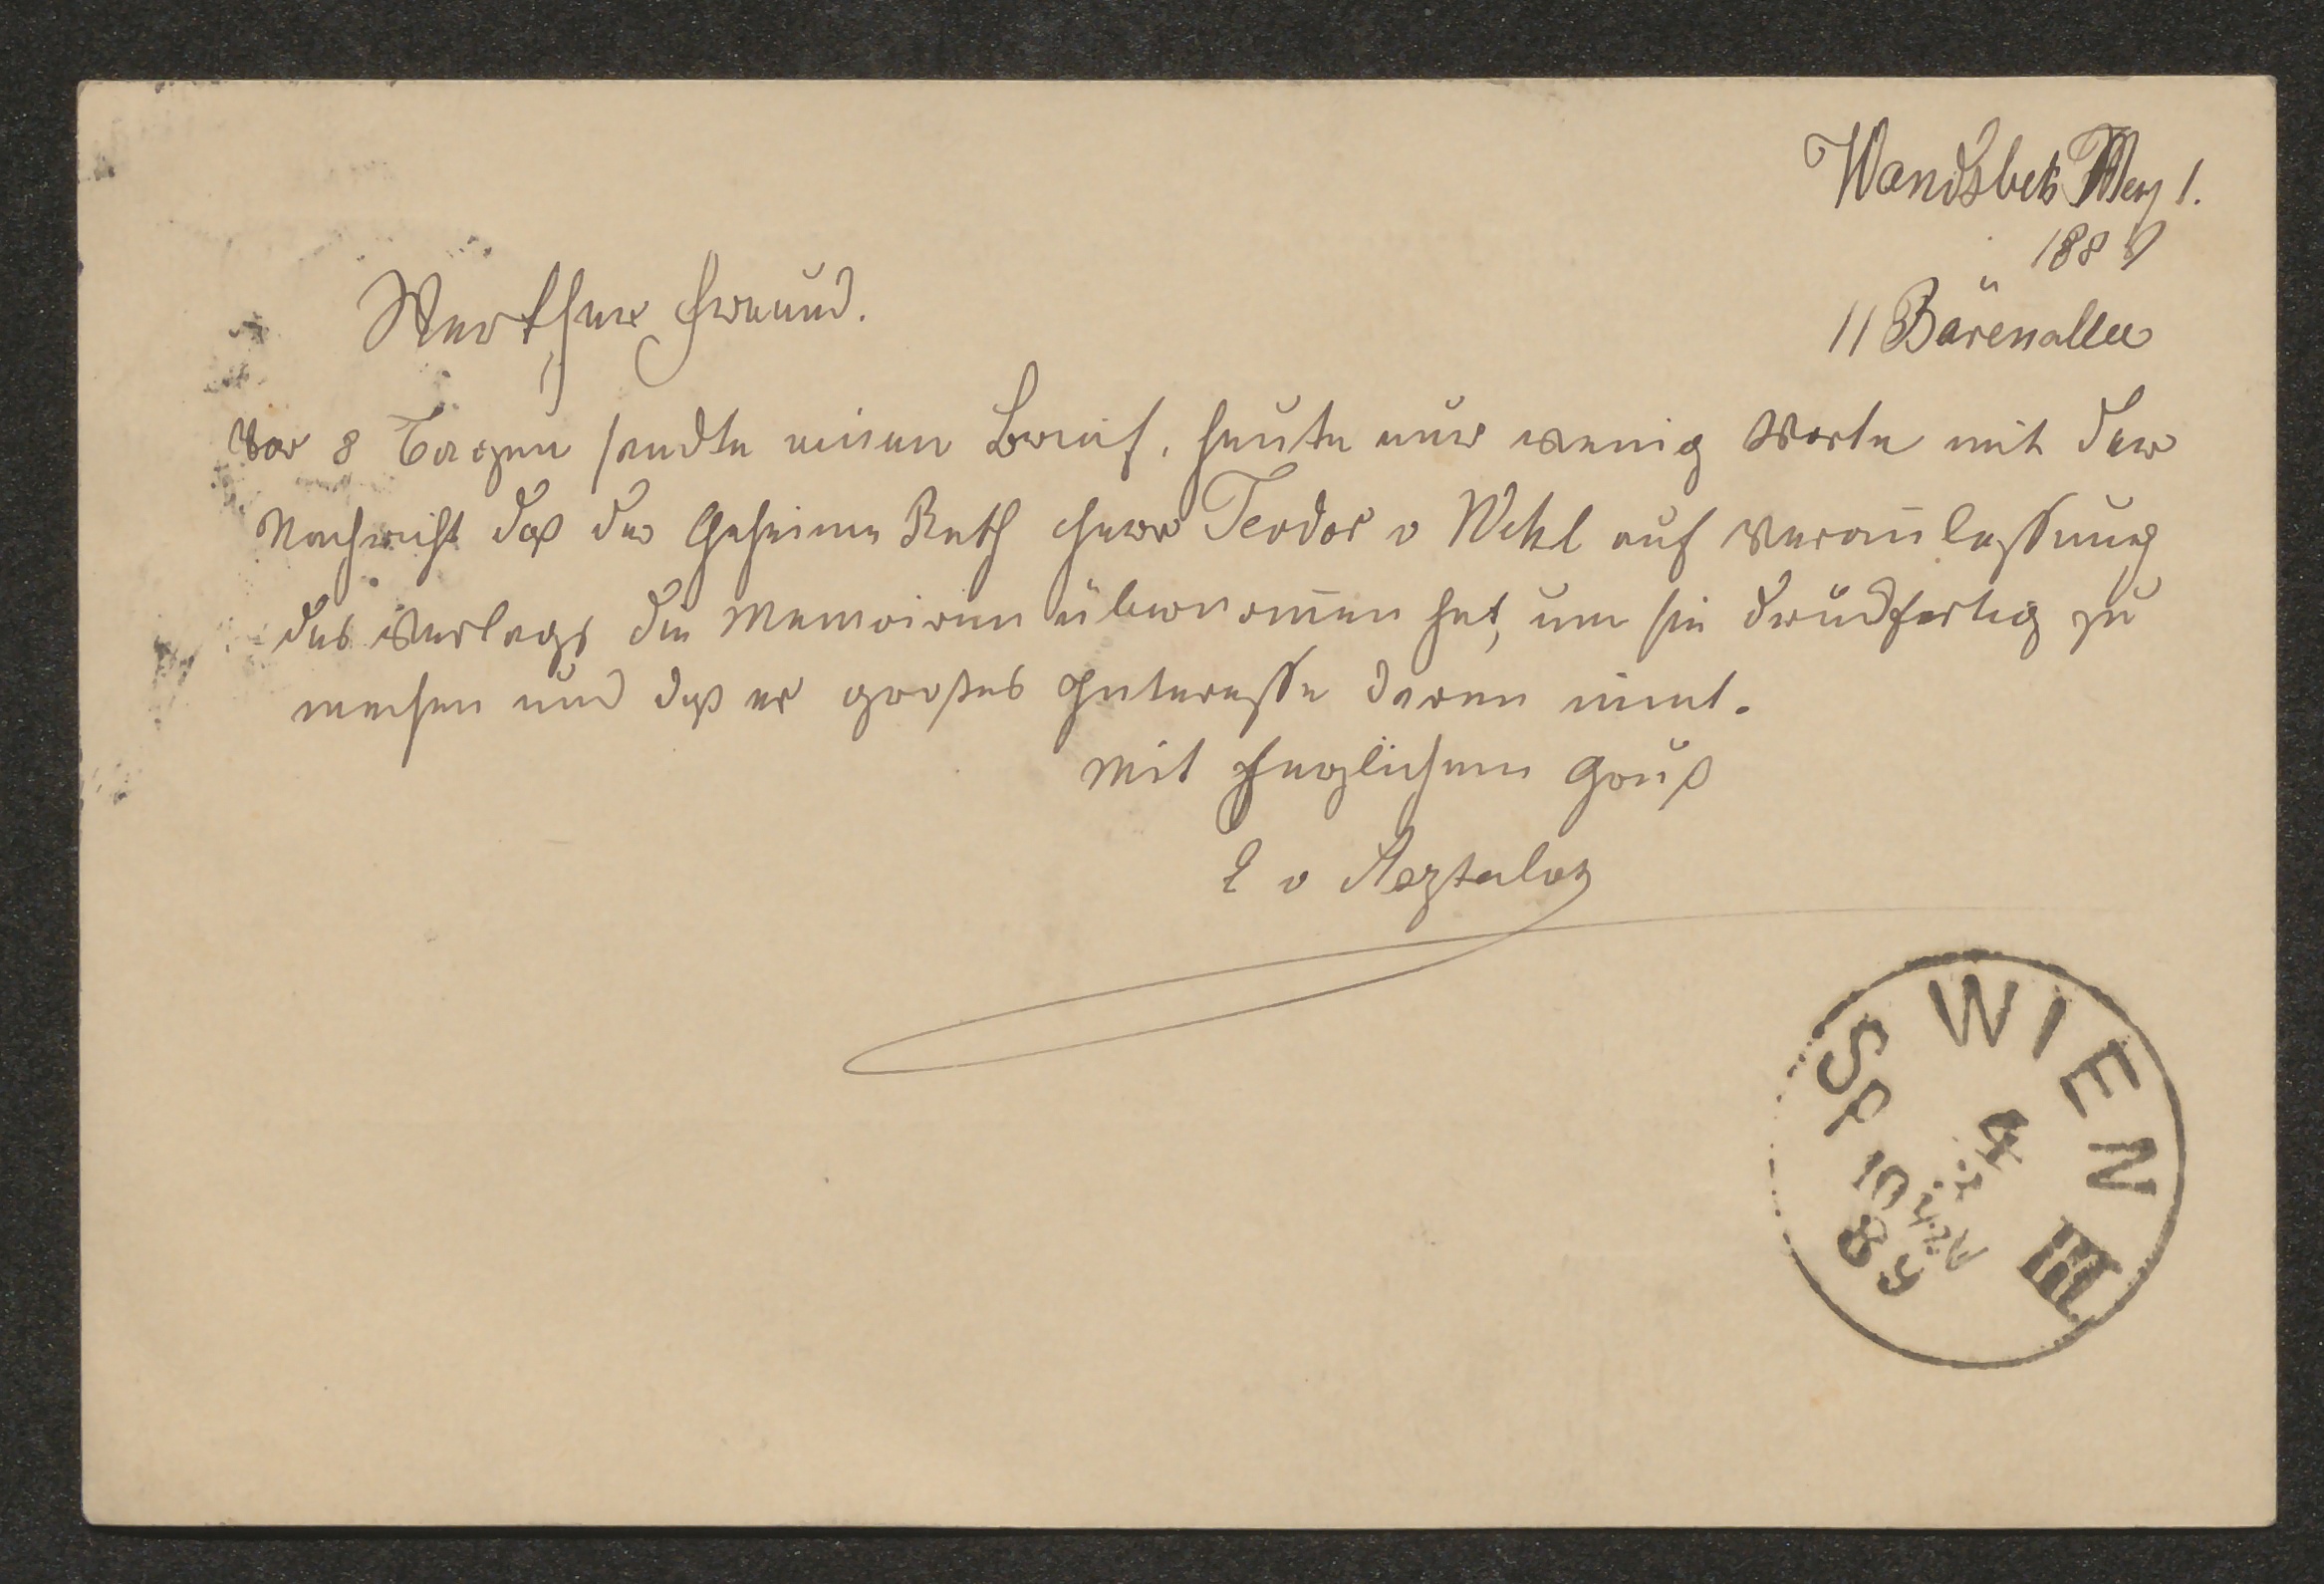 Wandsbek May 1.
1889
11 Bärenallee
Werther Freund.
Vor 8 Tagen sandte einen Brief. heute nur wenig Worte mit der
Nachricht daß der Geheime Rath Herr Teodor v Wehl auf Veranlassung
des Verlags die Memoiren übernomen hat, um sie druckfertig zu
machen und daß er großes Interesse daran nimt.
Mit herzlichem Gruß
E v Asztalos
WIEN III
4 5
89